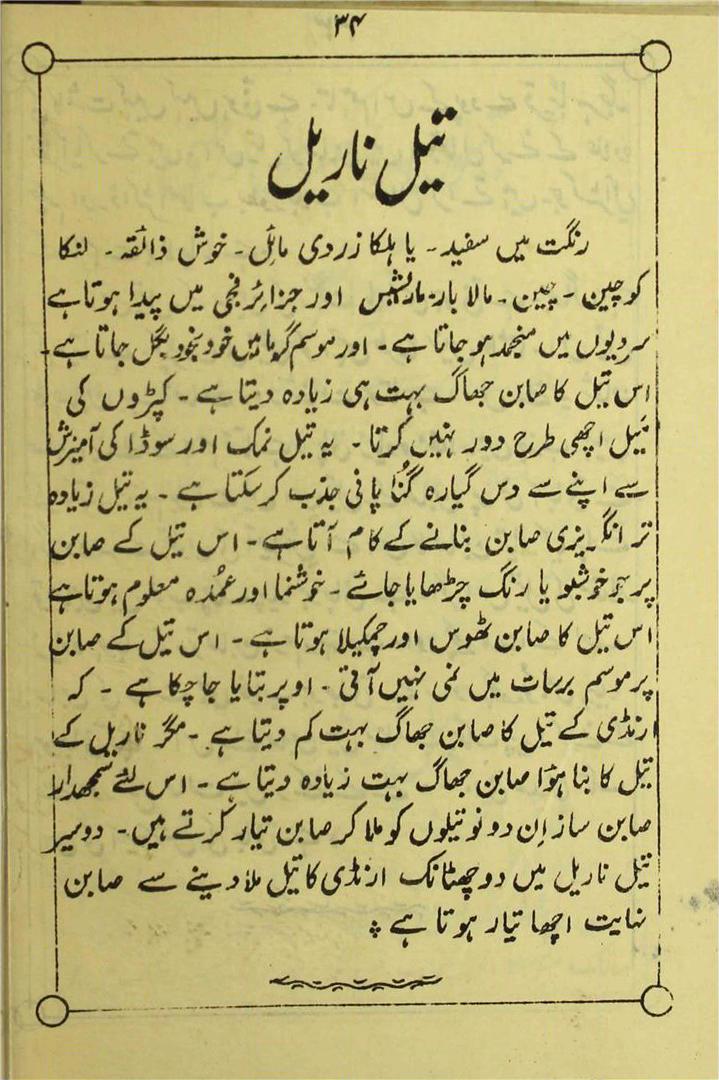 ۳۴
تیل ناریل
رنگت میں سفید ۔ یا ہلکا زردی مائل ۔ خوش ذائقہ ۔ لنکا
کوچین ۔ چین ۔ مالا بار۔ ماریشیس اور جزائر فجی میں پیدا ہوتا ہے
سردیوں میں منجمد ہو جاتا ہے ۔ اور موسم گرما میں خود بخود پگل جاتا ہے ۔
اس تیل کا صابن جھاگ بہت ہی زیادہ دیتا ہے ۔ کپڑوں کی
میل اچھی طرح دور نہیں کرتا ۔ یہ تیل نمک اور سوڈا کی آمیزش
سے اپنے سے دس گیارہ گُنا پانی جذب کر سکتا ہے ۔ یہ تیل زیادہ
تر انگریزی صابن بنانے کے کام آتا ہے ۔ اس تیل کے صابن
پر جو خوشبو یا رنگ چڑھایا جائے ۔ خوشنما اور عمُدہ معلوم ہوتا ہے
اس تیل کا صابن ٹھوس اور چمکیلا ہوتا ہے ۔ اس تیل کے صابن
پر موسم برسات میں نمی نہیں آتی ۔ اوپر بتایا جا چکا ہے ۔ کہ
ارنڈی کے تیل کا صابن جھاگ بہت کم دیتا ہے ۔ مگر ناریل کے
تیل کا بنا ہوٗا صابن جھاگ بہت زیادہ دیتا ہے ۔ اس لئے سمجھدار
صابن ساز اِن دونو تیلوں کو ملا کر صابن تیار کرتے ہیں ۔ دو سیر
تیل ناریل میں دو چھٹانک ارنڈی کا تیل ملا دینے سے صابن
نہایت اچھا تیار ہوتا ہے ؞